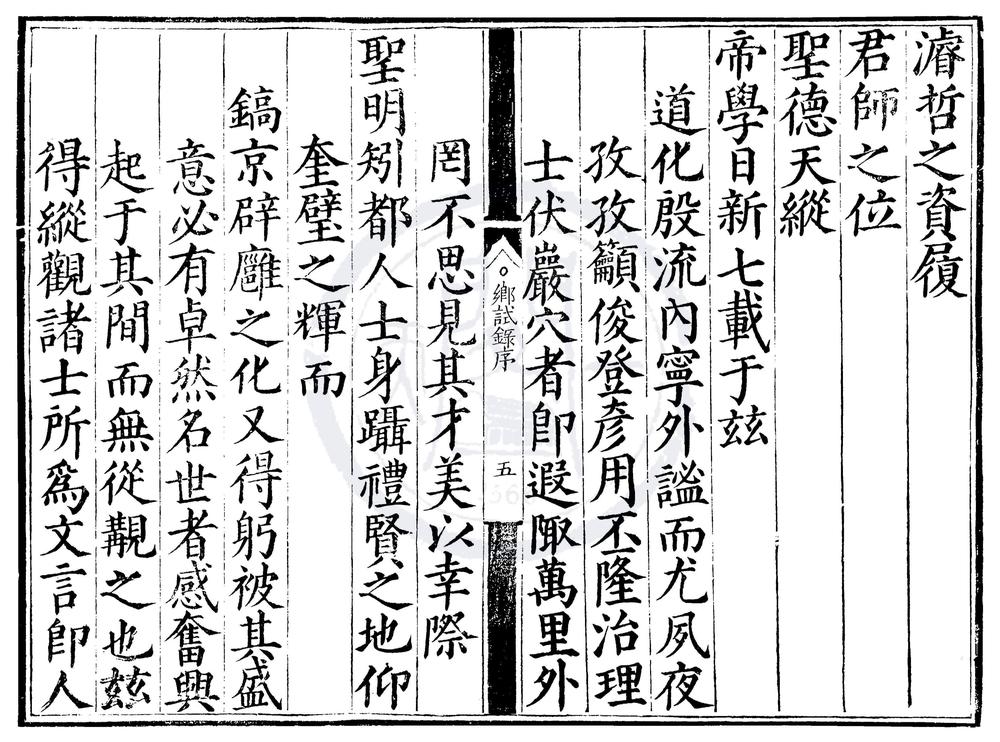 濬哲之資履
君師之位
聖德天縱
帝學日新七載于兹
道化殷流內寧外謐而尤夙夜
孜孜籲俊登彥用丕隆治理
士伏巖穴者卽遐陬萬里外
鄉試錄序
五
罔不思見其才美以幸際
聖明矧都人士身躡禮賢之地仰
奎璧之輝而
鎬京辟廱之化又得躬被其盛
意必有卓然名世者感奮興
起于其間而無從覯之也兹
得縱觀諸士所爲文言卽人